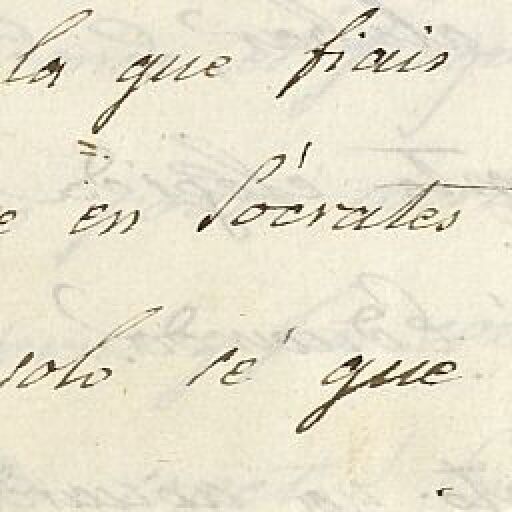 la que fiais
e en Sócrates
solo sé que